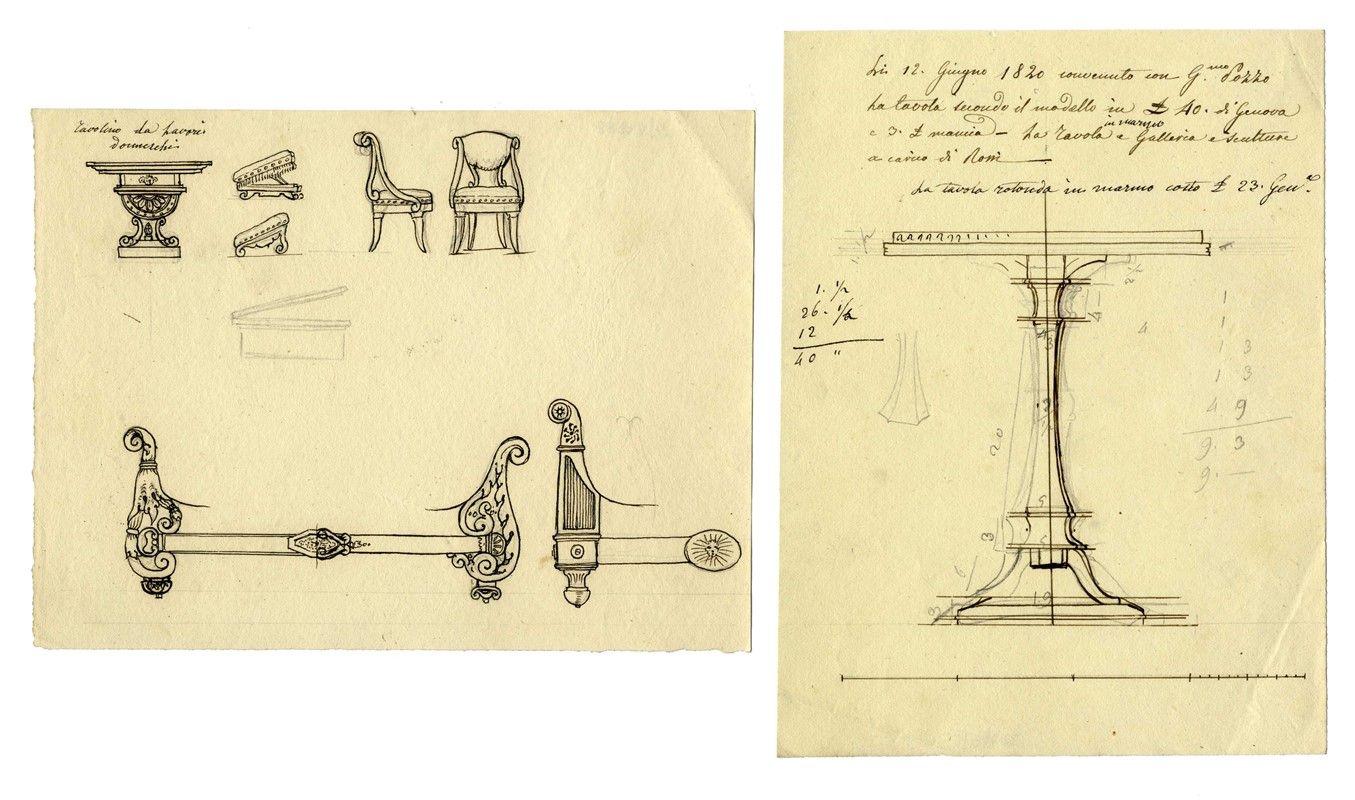 Tavolino da Lavori
donneschi
Li 12. Giugno 1820 convenuto con G.mo Pozzo
La tavola secondo il modello in £ 40. di Genova
e 3. £ mancia – La Tavola in marmo e Galleria e sculture
a carico di
La tavola rotonda in marmo costo £ 23. Gen.a
1 1/2
2 1/2
1. 1/2
26. 1/2
12
40 "
4
4
3
20
5
3
6
3
19
1
1
1 3
1 3
4 9
9. 3
9. —